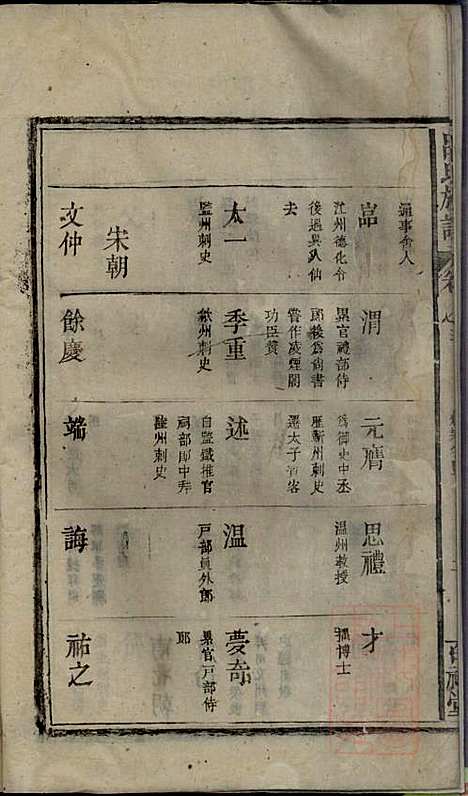 通事舍人
嵓
江州德化令
後遇異人仙
去
渭
累官禮部侍
郎後為尚書
嘗作凌煙閣
功臣贊
元膺
為御史中丞
歷蘄州刺史
遷太子賓客
思禮
溫州教授
才
博士
太一
監州刺史
季重
歙州刺史
述
自監鐵推官
祠部郎中拜
陸州刺史
溫
戸部員外郎
夢奇
累官戸部侍
郎
宋朝
文仲
餘慶
端
誨
祐之